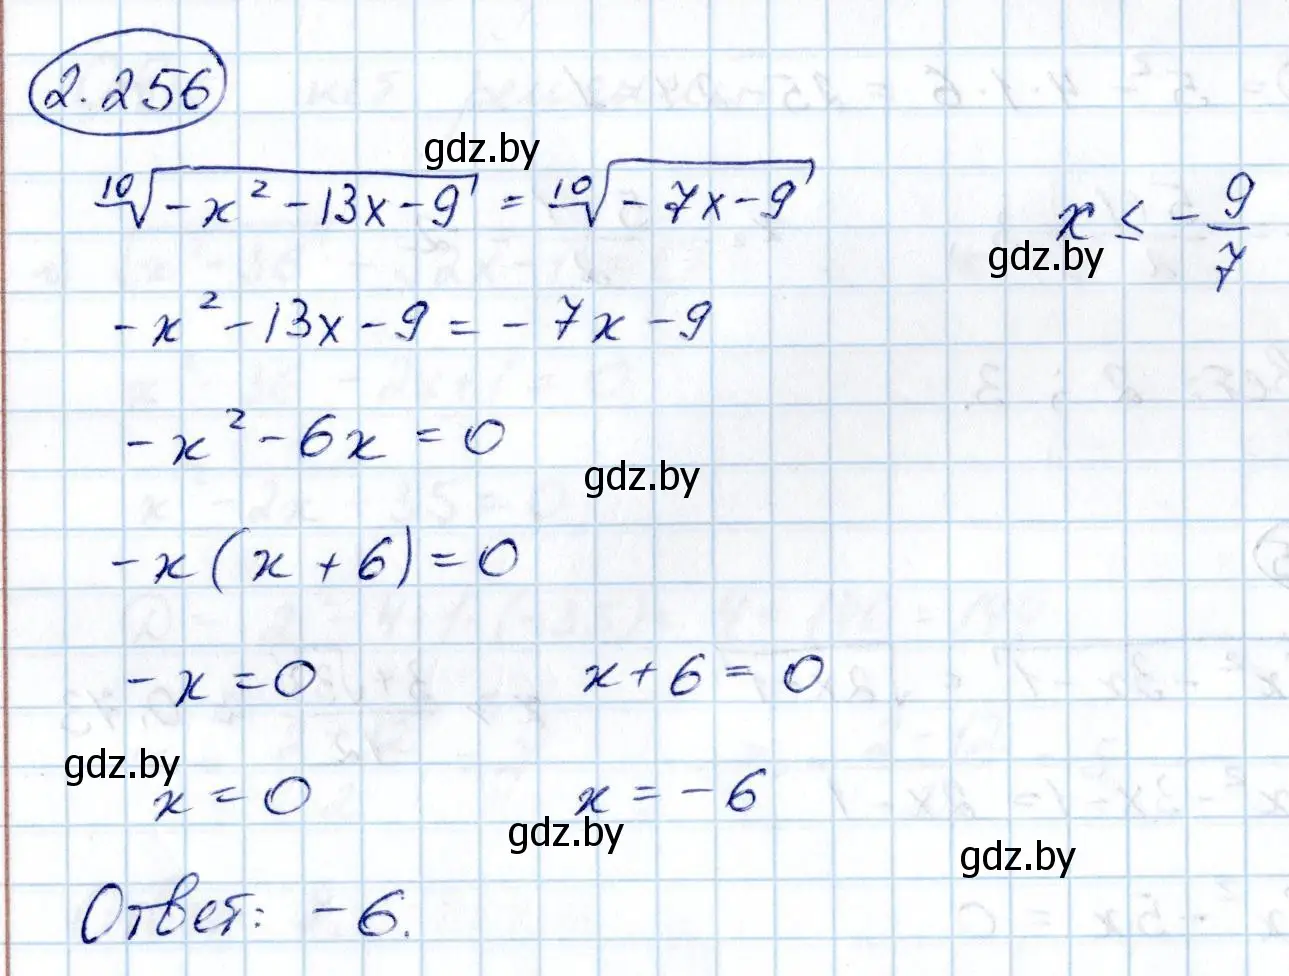 2.256
gdz.by
¹⁰√(-x² - 13x - 9) = ¹⁰√(-7x - 9)
x ≤ -9/7
gdz.by
-x² - 13x - 9 = -7x - 9
-x² - 6x = 0
gdz.by
-x(x + 6) = 0
-x = 0 x + 6 = 0
gdz.by
x = 0 x = -6
gdz.by
gdz.by
Ответ: -6.